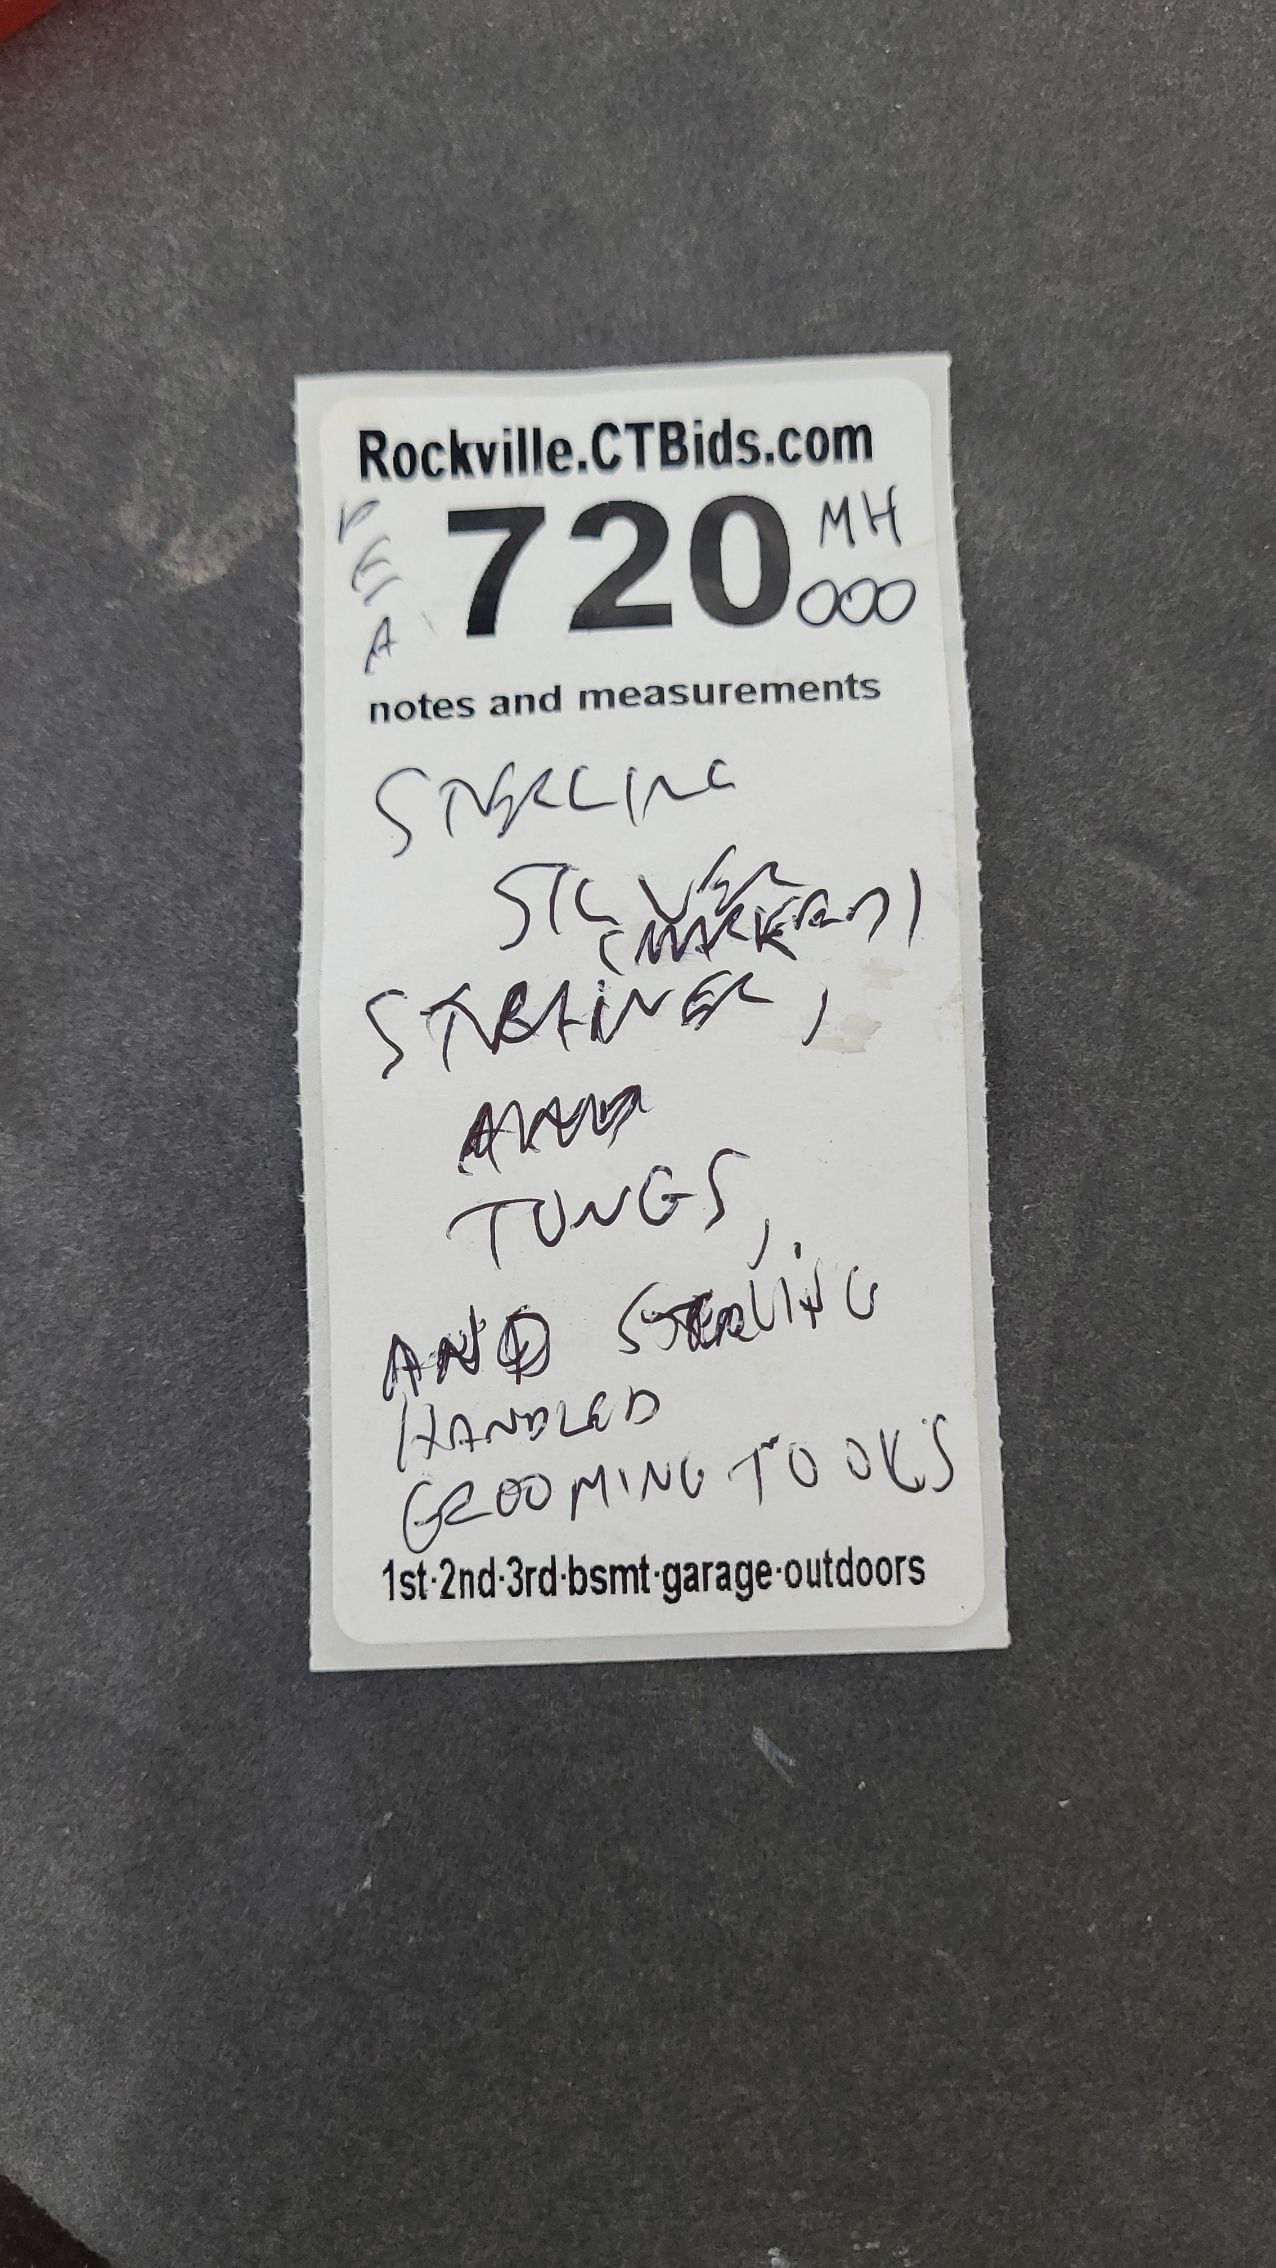 Rockville.CTBids.com
720
MH
000
notes and measurements
STERLING
SILVER
(MARKED)
STRAINER,
TONGS,
AND STERLING
HANDLED
GROOMING TOOLS
1st·2nd·3rd·bsmt·garage·outdoors